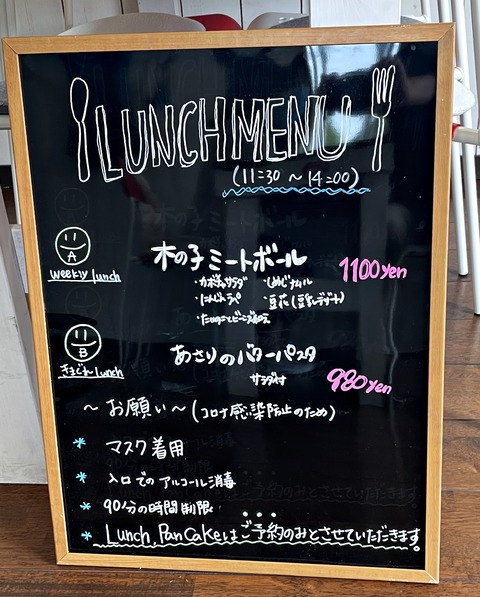 LUNCH MENU
(11:30 ~ 14:00)
A
weekly lunch
木の子ミートボール
1100yen
・かぼちゃサラダ ・しめじナムル
・にんじんラペ ・豆花(豆乳デザート)
B
きまぐれ lunch
あさりのバターパスタ
サラダ付
980yen
~ お願い ~ (コロナ感染防止のため)
* マスク着用
* 入口でのアルコール消毒
* 90分の時間制限
* Lunch, PanCakeはご予約のみとさせていただきます。